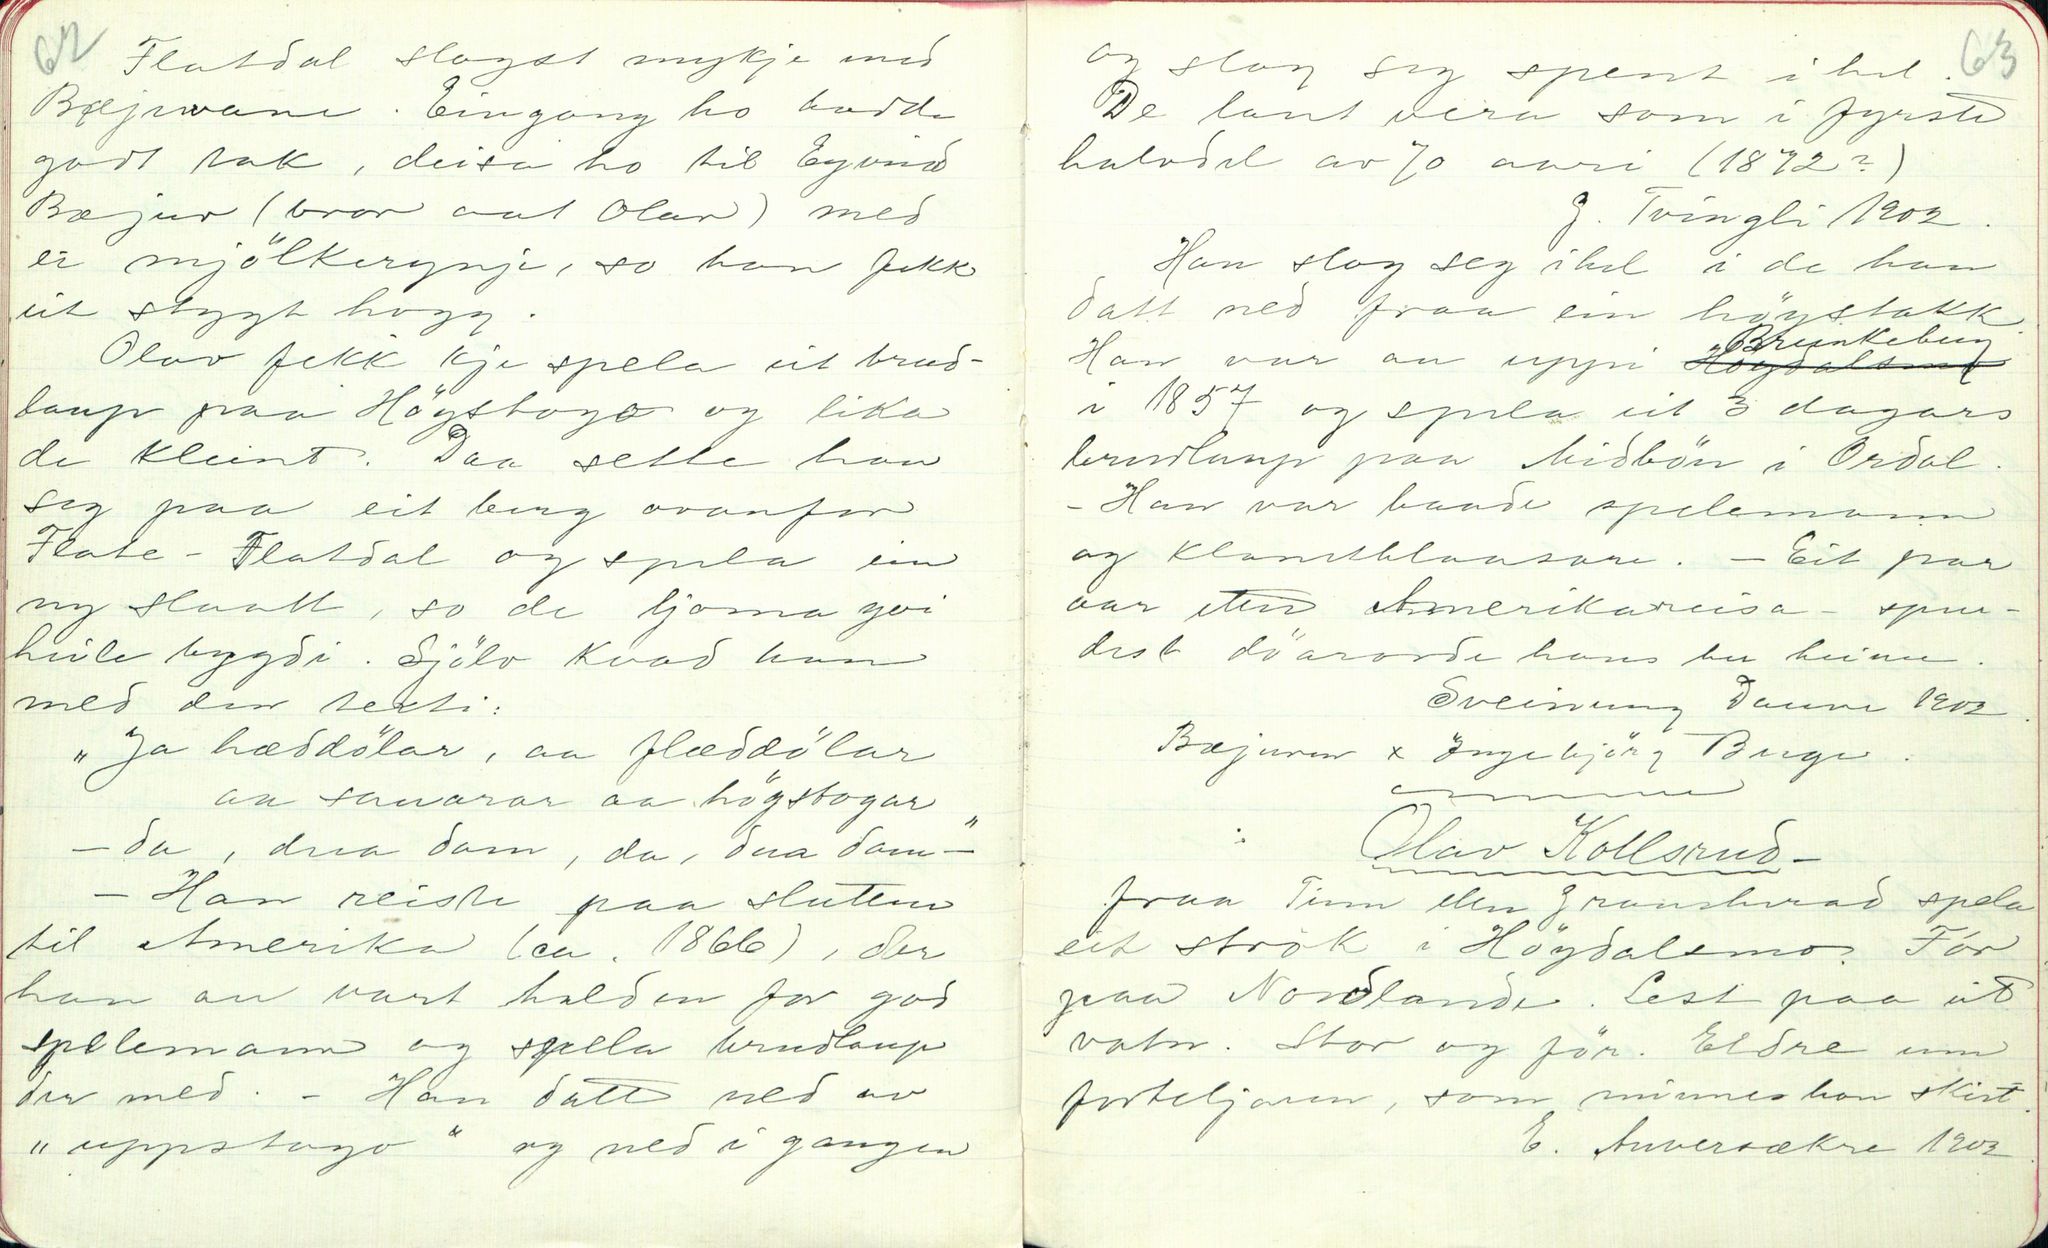 62
Flatdal slogst mykje med
Bæjuvane. Eingong ho hadde
godt tak, deisa ho til Eyvind
Bæjuv (bror aat Olav) med
ei mjölkerynje, so han fekk
eit stygt hogg.
Olav fekk kje spela eit brud-
laup paa Högstoga og lika
de kleint. Daa sette han
seg paa eit berg ovanfor
Flate-Flatdal og spela ein
ny slaatt, so de ljoma yvi
heile bygdi. Sjölv kvad han
med der texti:
"Ja hæddölar, aa flæddölar
aa sauarar aa högstogar
- da, dua dam, da, dua dam-"
- Han reiste paa sluten
til Amerika (ca. 1866), der
han au vart halden for god
spelemann og spela brudlaup
der med. - Han datt ned av
"uppstogo" og ned i gangen
63
og slog seg spent i hel.
De laut vera som i fyrste
halvdel av 70 aari (1872?)
G. Tvingli 1902.
Han slog seg ihel i de han
datt ned fraa ein höystakk.
Brunkeberg
Han var au uppi Höydalsmo
i 1857 og spela eit 3 dagars
brudlaup paa Midbön i Ordal.
- Han var baade spelemann
og klanetblaasare. - Eit par
aar etter Amerikareisa - spur-
dest döarorde hans her heime.
Sveinung Dauve 1902.
Bæjuven x Ingebjörg Berge.
Olav Kollsrud -
fraa Tinn eller Gransherad spela
eit strök i Höydalsmo. För
paa Nordlande. Lest paa eit
vatn. Stor og för. Eldre enn
forteljaren, som minnes han skirt.
E. Anversækre 1902